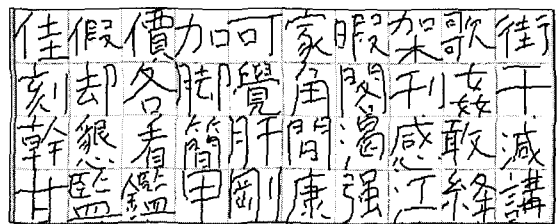 佳假價加可家暇架歌街
刻却各脚覺角閣刊姦干
幹懇看簡肝間渴感敢減
甘監鑑甲剛康强江講